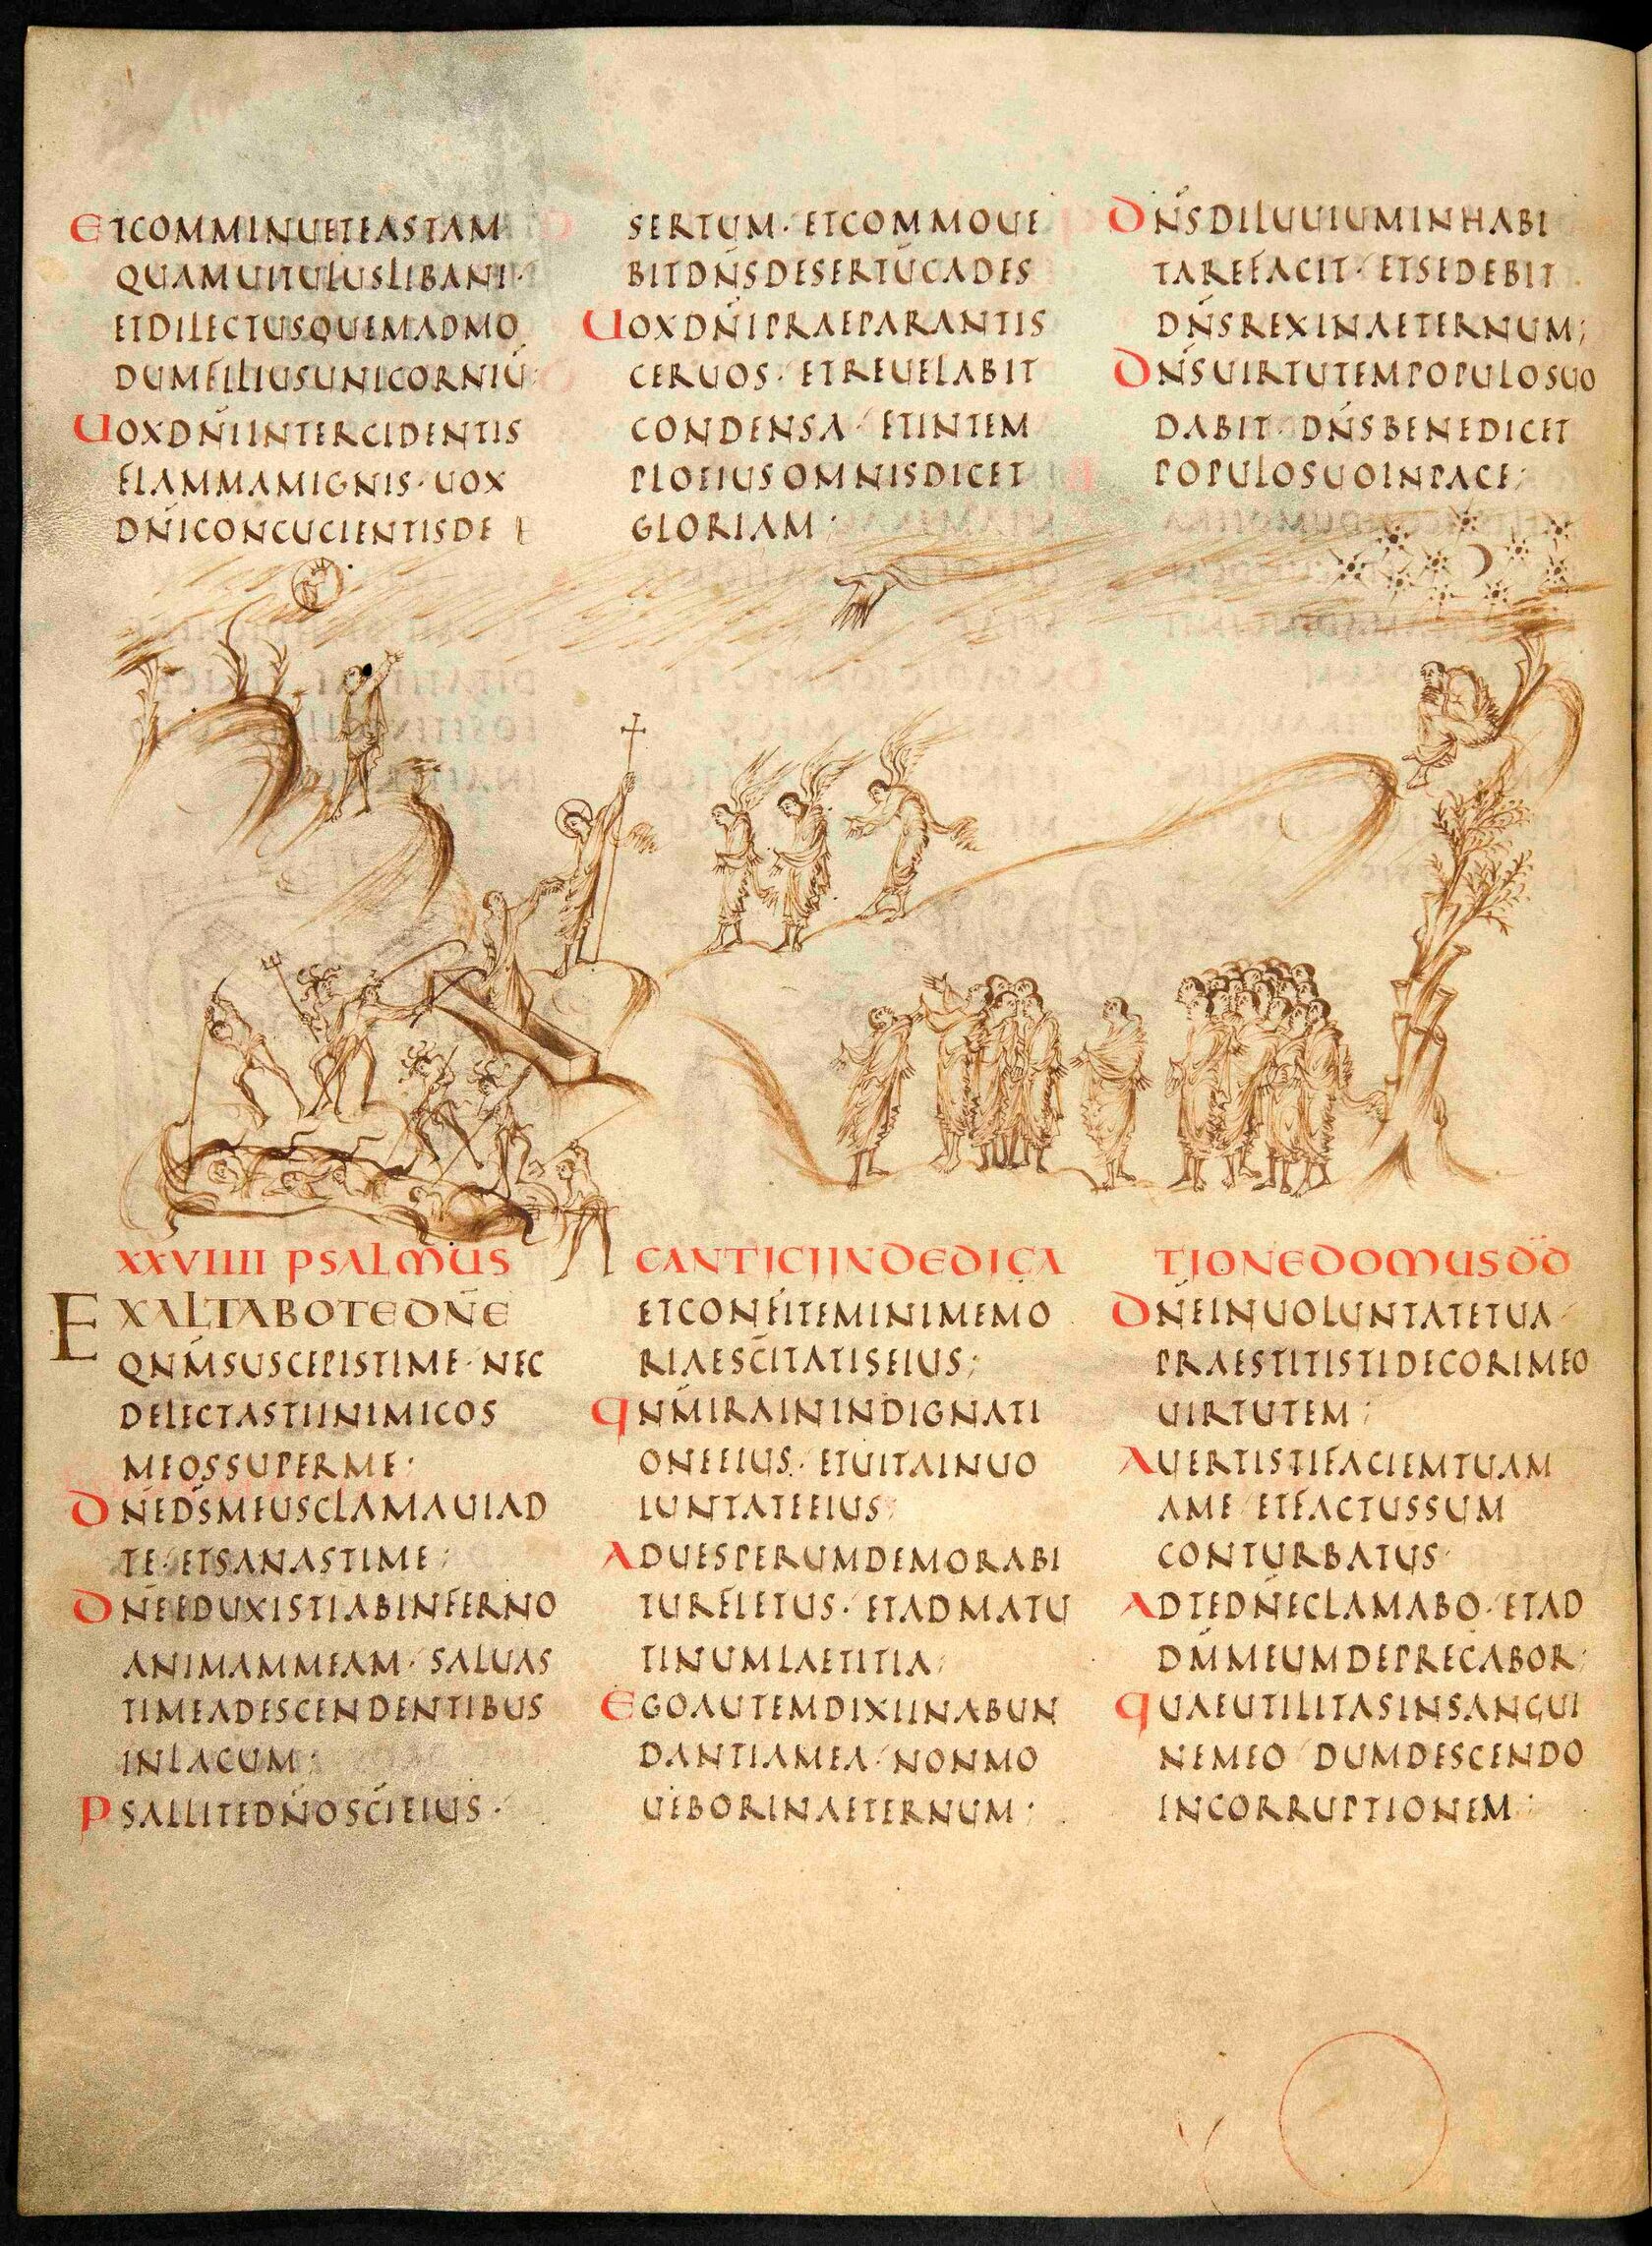 ETCOMMINUETEASTAM
QUAMUITULUSLIBANI·
ETDILECTUSQUEMADMO
DUMFILIUSUNICORNIŪ;
UOXDÑIINTERCIDENTIS
FLAMMAMIGNIS· UOX
DÑICONCUCIENTISDE
SERTUM· ETCOMMOUE
BITDÑSDESERTŪCADES
UOXDÑIPRAEPARANTIS
CERUOS· ETREUELABIT
CONDENSA· ETINTEM
PLOEIUSOMNISDICET
GLORIAM;
DÑSDILUUIUMINHABI
TAREFACIT· ETSEDEBIT
DÑSREXINAETERNUM;
DÑSUIRTUTEMPOPULOSUO
DABIT· DÑSBENEDICET
POPULOSUOINPACE;
XXVIIII PSALMUS
CANTICIINDEDICA
TIONEDOMUSDD
EXALTABOTEDÑE
QNM̄SUSCEPISTIME· NEC
DELECTASTIINIMICOS
MEOSSUPERME;
DÑEDS̄MEUSCLAMAUIAD
TE· ETSANASTIME;
DÑEEDUXISTIABINFERNO
ANIMAMMEAM· SALUAS
TIMEADESCENDENTIBUS
INLACUM;
PSALLITEDÑOSC̄IEIUS·
ETCONFITEMINIMEMO
RIAESC̄ITATISEIUS;
QNM̄IRAININDIGNATI
ONEEIUS· ETUITAINUO
LUNTATEEIUS;
ADUESPERUMDEMORABI
TURFLETUS· ETADMATU
TINUMLAETITIA;
EGOAUTEMDIXIINABUN
DANTIAMEA· NONMO
UEBORINAETERNUM;
DÑEINUOLUNTATETUA·
PRAESTITISTIDECORIMEO
UIRTUTEM;
AUERTISTIFACIEMTUAM
AME· ETFACTUSSUM
CONTURBATUS·
ADTEDÑECLAMABO· ETAD
DM̄MEUMDEPRECABOR;
QUAEUTILITASINSANGUI
NEMEO DUMDESCENDO
INCORRUPTIONEM;